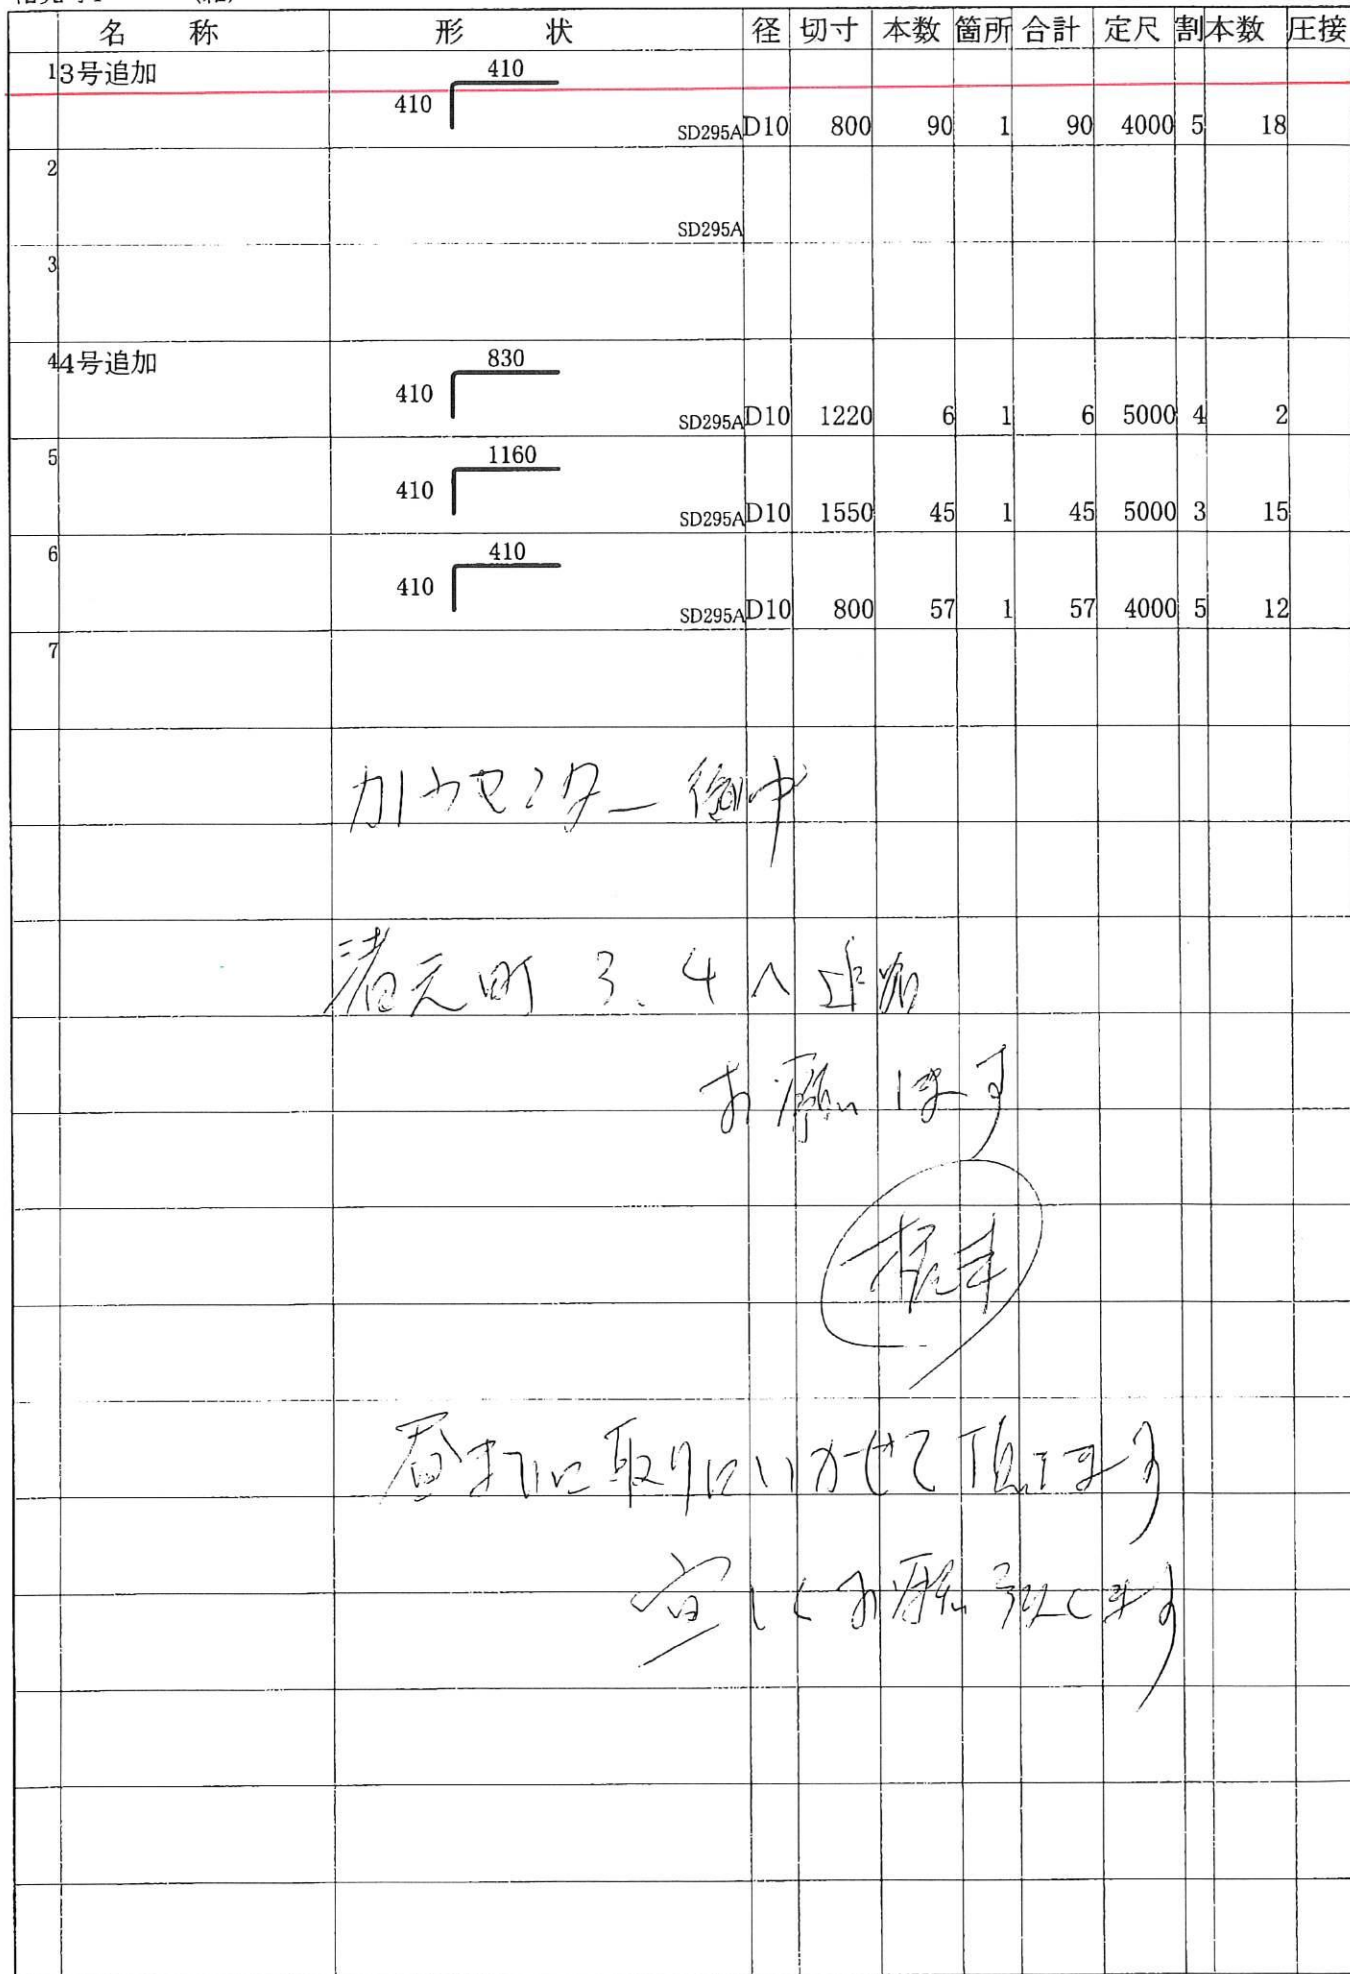 名 称 形 状 径 切寸 本数 箇所 合計 定尺 割 本数 圧接
1 3号追加 410 410 SD295A D10 800 90 1 90 4000 5 18
2 SD295A
3
4 4号追加 830 410 SD295A D10 1220 6 1 6 5000 4 2
5 1160 410 SD295A D10 1550 45 1 45 5000 3 15
6 410 410 SD295A D10 800 57 1 57 4000 5 12
7
カコウセンター 御中
渚元町 3、4へ追加
お願いします
昼までに取りにいかせて頂きます
宜しくお願い致します